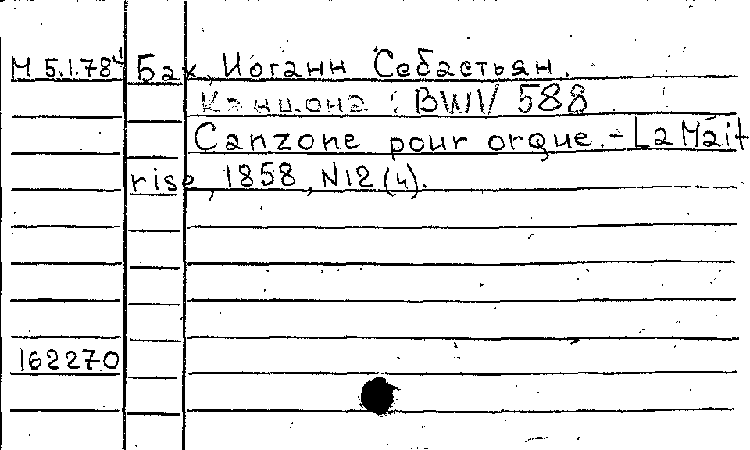 М 5.1.78ч Бах, Иоганн Себастьян.
Канцона : BWV 588
Canzone pour orgue. - La Mait
rise, 1858, N12 (4).
162270